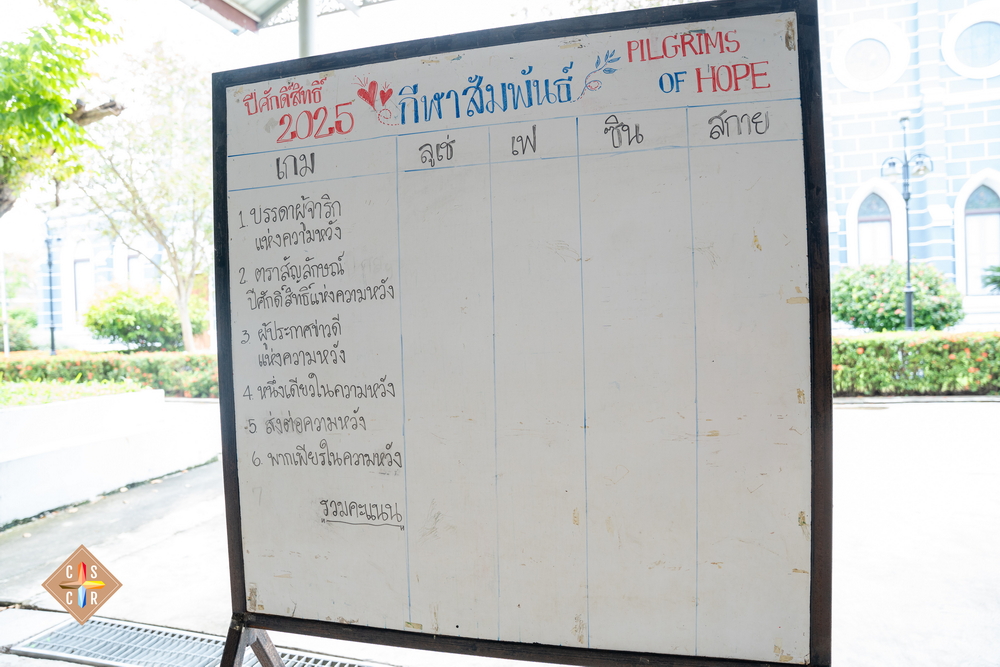 ปีศักดิ์สิทธิ์
2025
กีฬาสัมพันธ์
PILGRIMS
OF HOPE
เกม
ลูเช่
เฟ
ซิน
สกาย
1. บรรดาผู้จาริก
แห่งความหวัง
2. ตราสัญลักษณ์
ปีศักดิ์สิทธิ์แห่งความหวัง
3. ผู้ประกาศข่าวดี
แห่งความหวัง
4. หนึ่งเดียวในความหวัง
5. ส่งต่อความหวัง
6. พากเพียรในความหวัง
"รวมคะแนน"
C S
C R